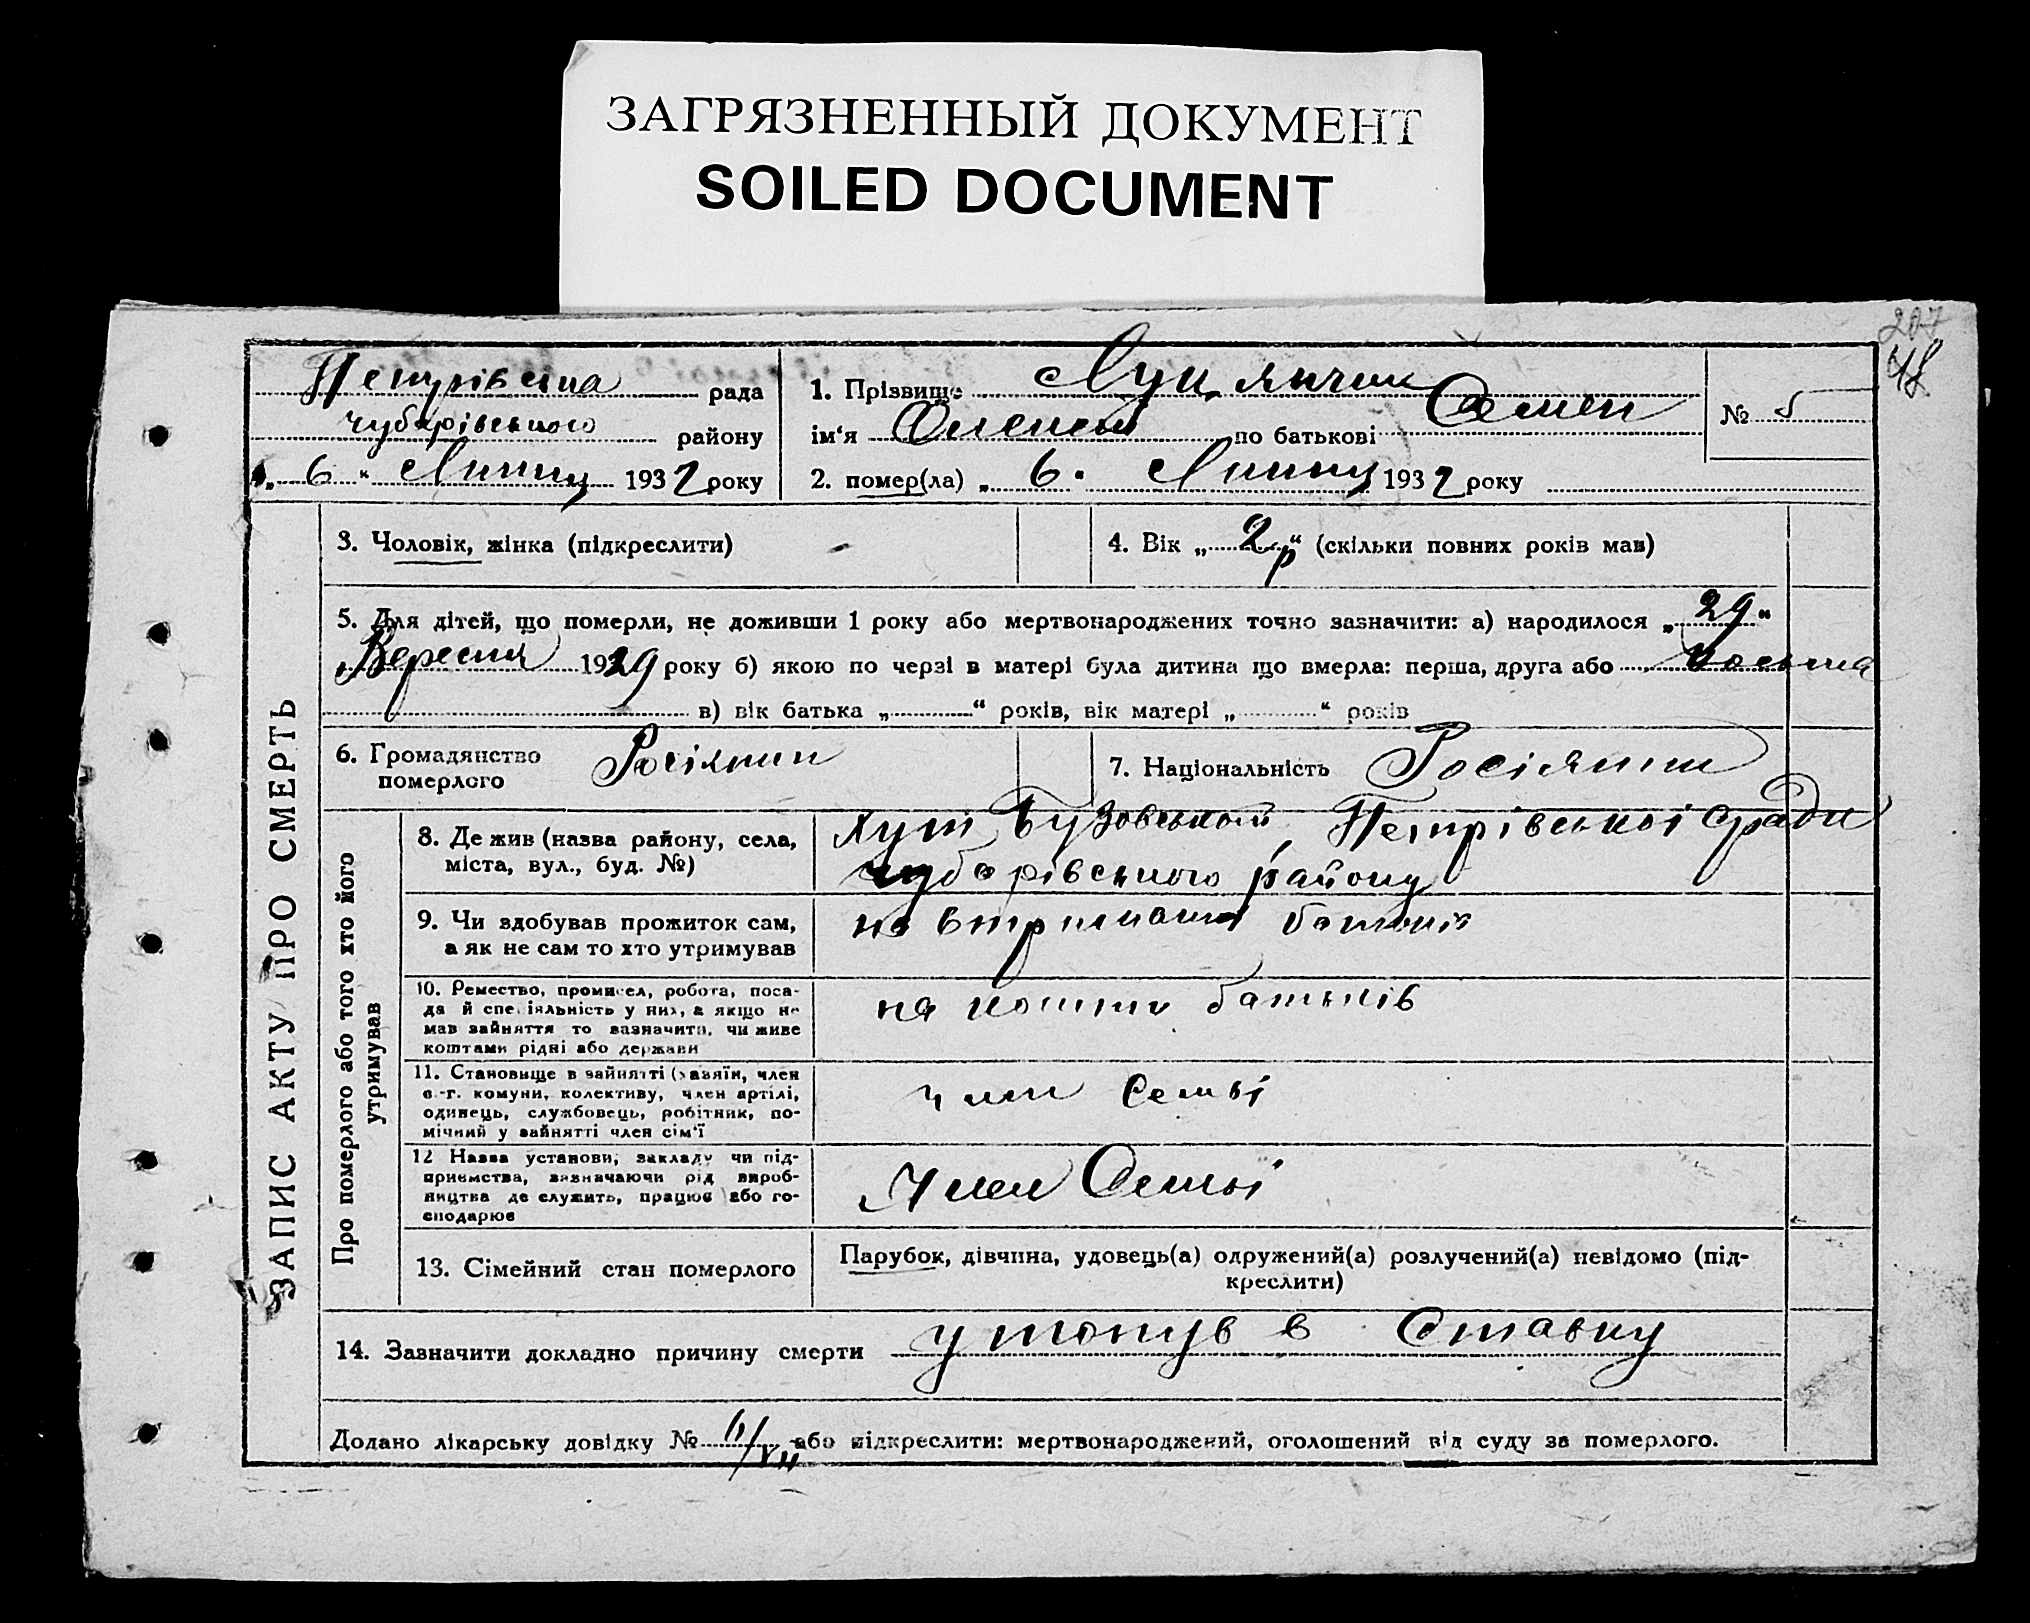 ЗАГРЯЗНЕННЫЙ ДОКУМЕНТ
SOILED DOCUMENT
207
48
рада
Чубарівського району
„ 6 “ Липня 1932 року
1. Прізвище
ім‘я по батькові Семен
№ 5
2. помер(ла) „ 6 “ Липня 1932 року
ЗАПИС АКТУ ПРО СМЕРТЬ
3. Чоловік, жінка (підкреслити)
4. Вік „ 2 р “ (скільки повних років мав)
5. Для дітей, що померли, не доживши 1 року або мертвонароджених точно зазначити: а) народилося „ 29 “
Вересня 1929 року б) якою по черзі в матері була дитина що вмерла: перша, друга або
в) вік батька „ “ років, вік матері „ “ років
6. Громадянство
померлого
Росіянин
7. Національність Росіянин
Про померлого або того хто його
утримував
8. Де жив (назва району, села,
міста, вул., буд. №)
хут Петрівської ради
Чубарівського району
9. Чи здобував прожиток сам,
а як не сам то хто утримував
на втриманні батьків
10. Ремество, промисел, робота, поса-
да й спеціяльність у них, а якщо не
мав зайняття то зазначити, чи живе
коштами рідні або держави
на кошти батьків
11. Становище в зайнятті (хазяїн, член
с.-г. комуни, колективу, член артілі,
одинець, службовець, робітник, по-
мічний у зайнятті член сім‘ї
член семьі
12 Назва установи, закладу чи під-
приємства, зазначаючи рід вироб-
ництва де служить, працює або го-
сподарює
Член Семьі
13. Сімейний стан померлого
Парубок, дівчина, удовець(а) одружений(а) розлучений(а) невідомо (під-
креслити)
14. Зазначити докладно причину смерти утонув в Ставку
Додано лікарську довідку № або підкреслити: мертвонароджений, оголошений від суду за померлого.